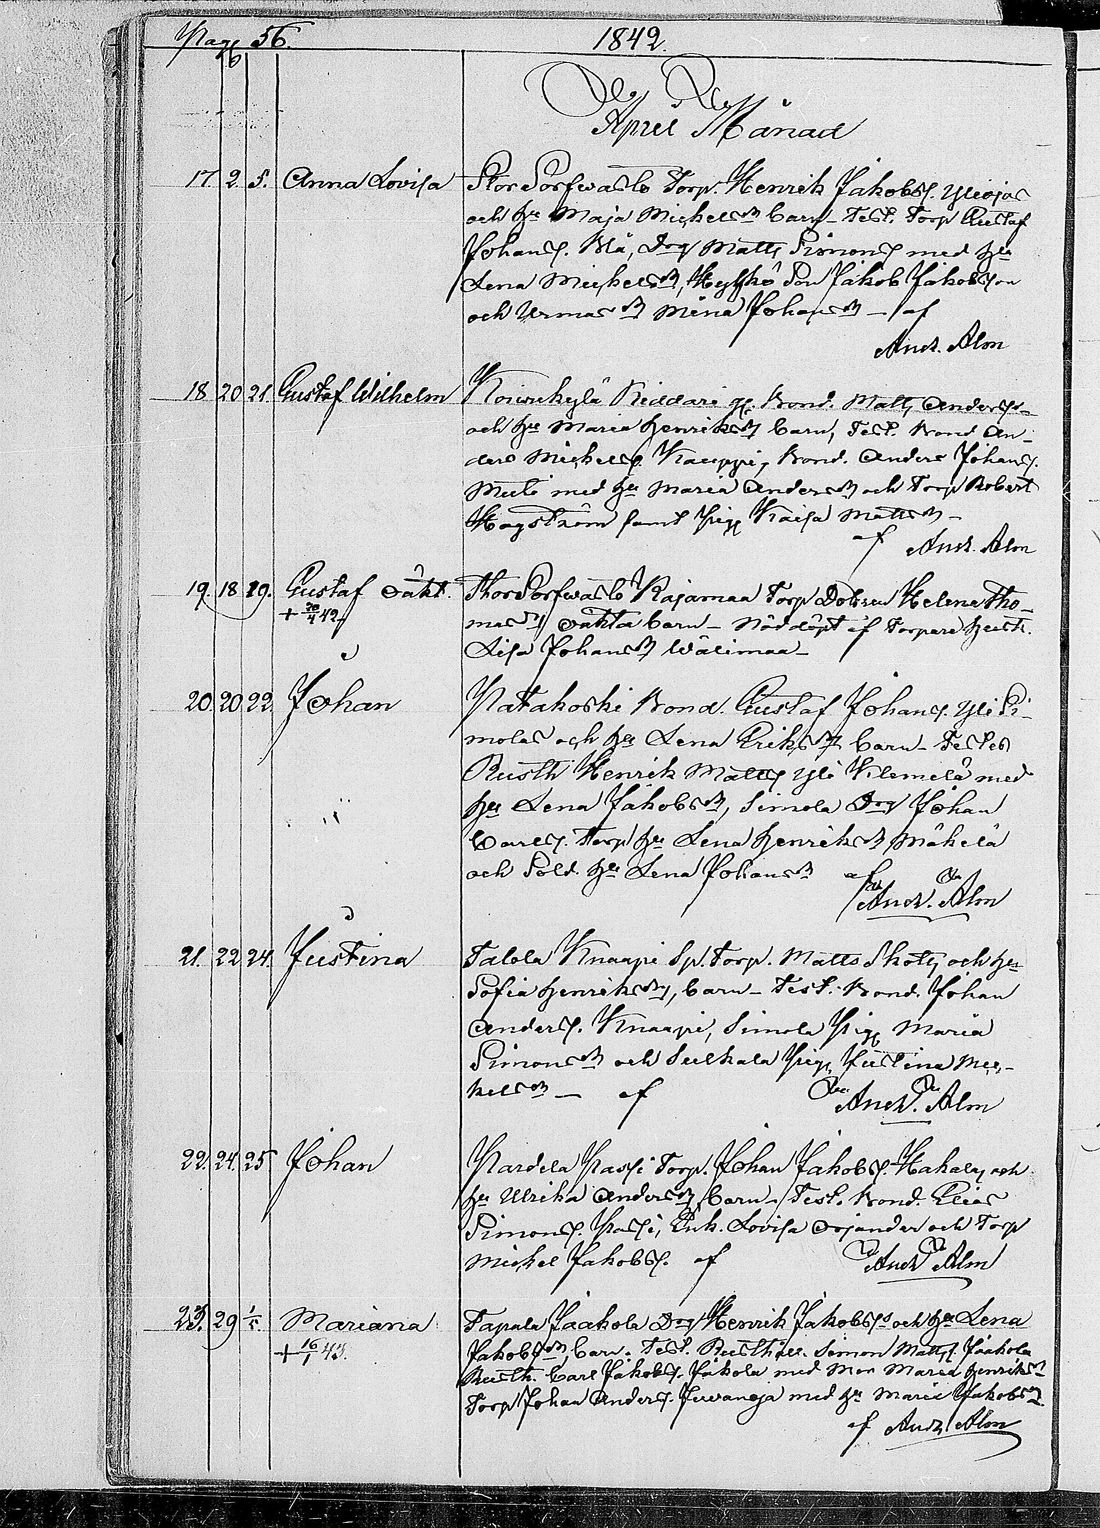 Pag 56. 1842.
April Månad
17 2. 5. Anna Lovisa Stor Sorfwasto Torp. Henrik Jakobs. Yliojas
och hu Maja Michelsdr barn – Test. Torp Gustaf
Johans. Blå, Drg Matts Simons med hu
Lena Michelsdr, Hyskö Son Jakob Jakobson
och Urmas dr Mina Johansdr – af
And. Alm
18 20 21. Gustaf Wilhelm Koivukylä Riddari Bond. Matts Anders
och hu Maria Henriksdr barn, Test. Bond An-
ders Michels. Kauppi, Bond. Anders Johans.
med hu Maria Andersdr och Torp Robert
Hagström samt Pig Kaisa Mattsdr –
af And. Alm
19. 18 19. Gustaf oäkt. Stor Sorfwasto Rajamaa Torp Dottren Helena Tho-
+ 20/4 42 masdr oäkta barn – Nöddöpt af Torpare hust.
Lisa Johansdr Wälimaa –
20. 20 22. Johan Patakoski Bond. Gustaf Johans. Yli Si-
molas och hu Lena Eriksdr barn – Testes
Rusth Henrik Matts Yli Kilemilä med
hu Lena Jakobsdr, Simola Drg Johan
Carls. Torp hu Lena Henriksdr Mäkelä
och Sold. hu Lena Johansdr af
And. Alm
21. 22 24. Justina Talola Knaapi Sp. Torp. Matts Skott och hu
Sofia Henriksdr, barn – Test. Bond. Johan
Anders. Knaapi, Simola Pig Maria
Simonsdr och Sulkala Pig Justina Mi-
kelsdr – af And. Alm
22. 24. 25 Johan Pardela Passi Torp. Johan Jakobs. Hakala och
hu Ulrika Andersdr barn – Test. Bond. Elias
Simons. Passi, Enk. Lovisa Orjander och Torp
Michel Jakobs. af And. Alm
23. 29 1/5 Mariana Tapala Jaakola Drg Henrik Jakobs och hu Lena
+ 16/1 43. Jakobsdr barn. Test. Rusthåll. Simon Matts Jaakola
Rusth. Carl Jakobs. Jakola med Mor Maria Henriksdr
Torp Johan Anders. Juvanoja med hu Maria Jakobsdr
af And. Alm